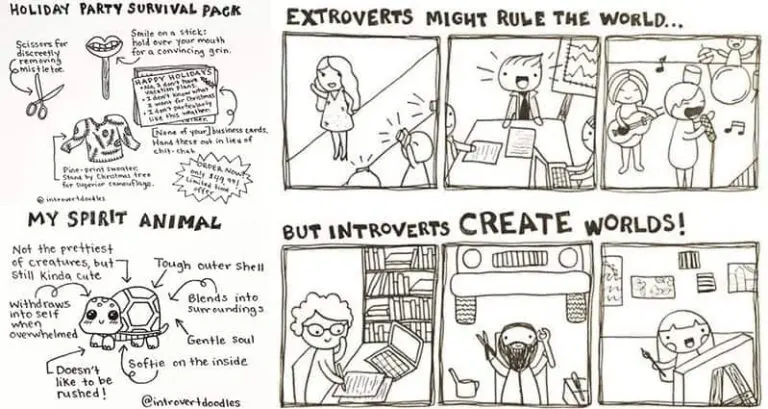 HOLIDAY PARTY SURVIVAL PACK
Scissors for
discreetly
removing
mistletoe.
Smile on a stick:
hold over your mouth
for a convincing grin.
HAPPY HOLIDAYS
• No, I don't have
vacation plans.
• I don't know what
I want for Christmas
• I don't particularly
like this weather
[None of your] business cards.
Hand these out in lieu of
chit-chat
Pine-print sweater.
Stand by Christmas tree
for superior camouflage.
ORDER NOW!
only $49.99!
Limited time
offer
@introvertdoodles
MY SPIRIT ANIMAL
Not the prettiest
of creatures, but
still kinda cute
Tough outer shell
Withdraws
into self
when
overwhelmed
Blends into
surroundings
Gentle soul
Softie on the inside
Doesn't
like to be
rushed!
@introvertdoodles
EXTROVERTS MIGHT RULE THE WORLD...
BUT INTROVERTS CREATE WORLDS!